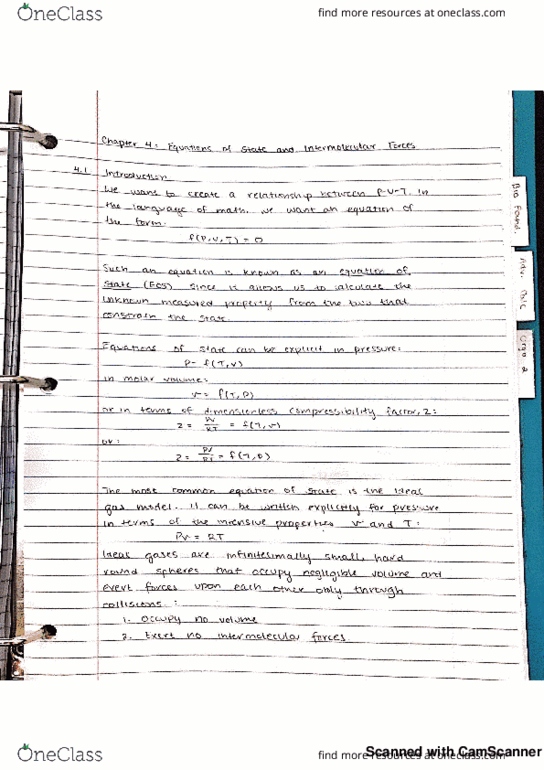 OneClass
find more resources at oneclass.com
Chapter 4: Equations of State and Intermolecular Forces
4.1 Introduction
We want to create a relationship between P-V-T. In
the language of math, we want an equation of
the form:
f(P,V,T) = 0
Such an equation is known as an equation of
State (EOS) since it allows us to calculate the
unknown measured property from the two that
constrain the state.
Equations of state can be explicit in pressure:
P= f(T,v)
in molar volume:
v= f(T,P)
or in terms of dimensionless compressibility factor, z:
z = Pv/RT = f(T,v)
or:
z = Pv/RT = f(T,P)
The most common equation of state is the ideal
gas model. It can be written explicitly for pressure
in terms of the intensive properties v and T:
Pv = RT
Ideal gases are infinitesimally small, hard
round spheres that occupy negligible volume and
exert forces upon each other only through
collisions:
1. Occupy no volume
2. Exert no intermolecular forces
Bio Found.
Orgo 2
OneClass
find more resources at oneclass.com
Scanned with CamScanner